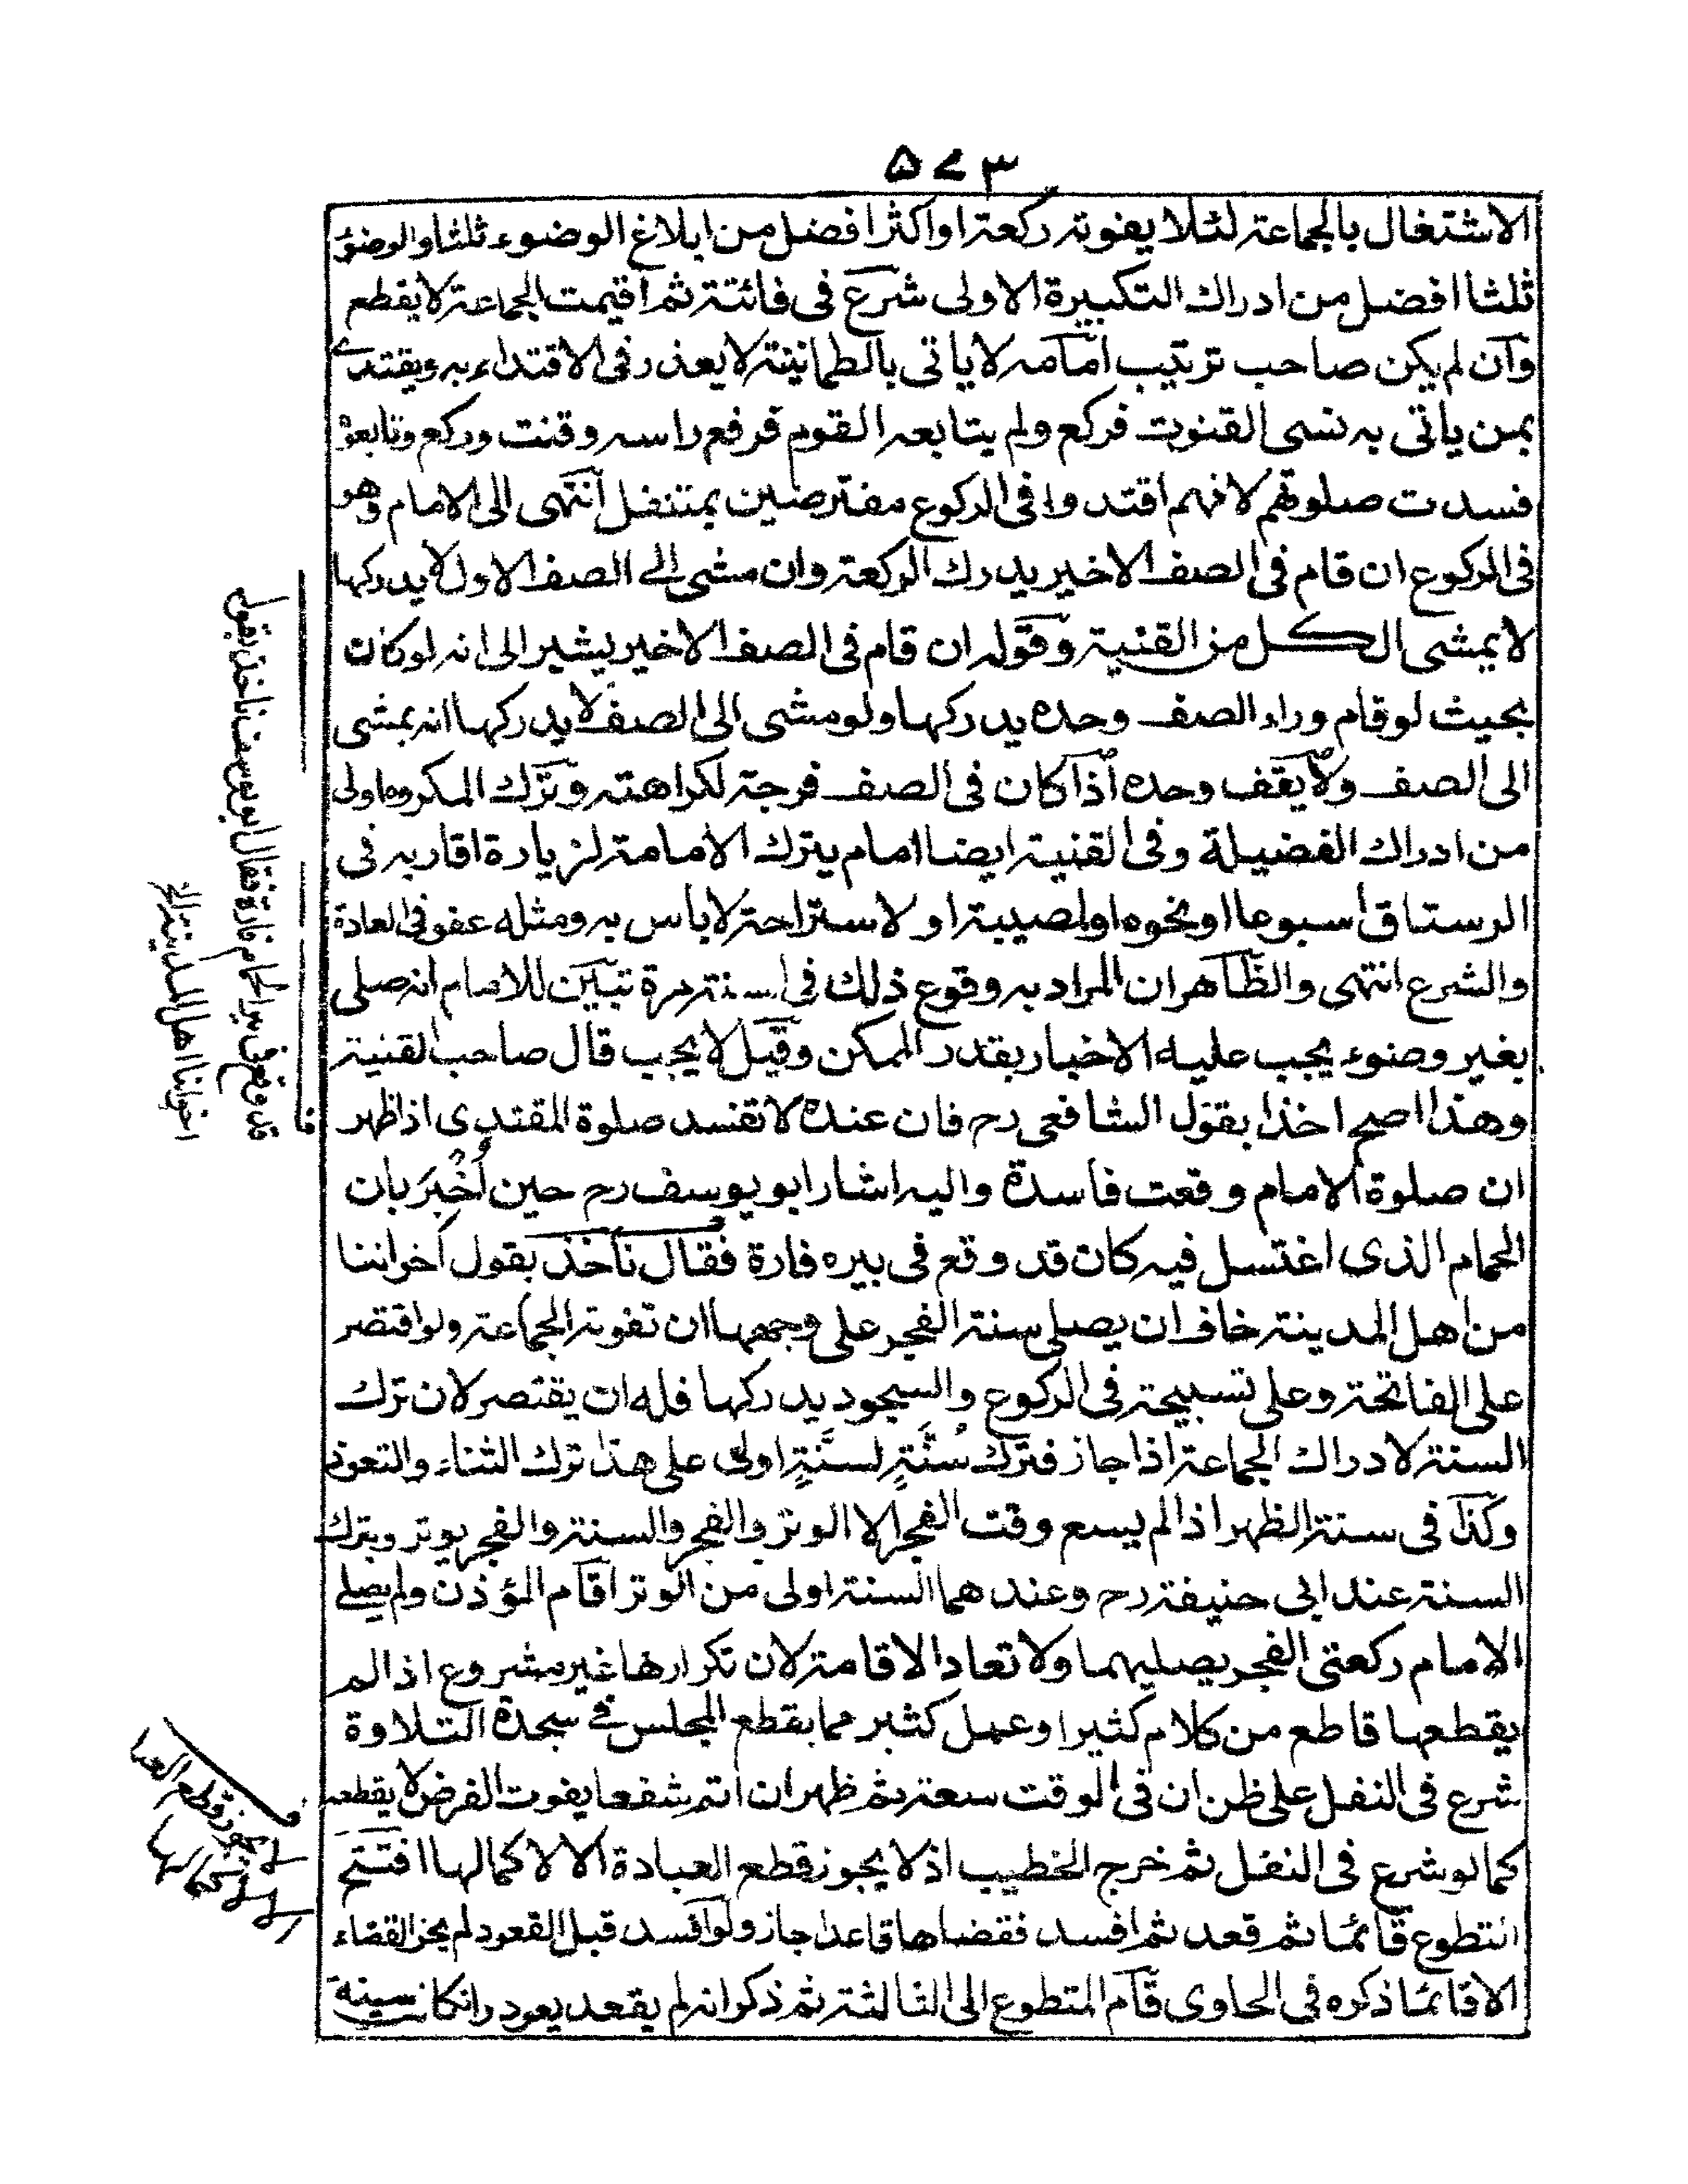 ۵۷۳
الاشتغال بالجماعة لئلا يفوته ركعة او اكثر افضل من ابلاغ الوضوء ثلثا والوضؤ
ثلثا افضل من ادراك التكبيرة الاولى شرع فى فائتة ثم اقيمت الجماعة لا يقطع
وان لم يكن صاحب ترتيب امامه لا ياتى بالطمانينة لا يعذر فى الاقتداء به ويقتدے
بمن ياتى به نسى القنوت فركع ولم يتابعه القوم فرفع راسه وقنت وركع وتابعوْ
فسدت صلوتهم لانهم اقتدوا فى الركوع مفترضين بمتنفل انتهى الى الامام وهو
فى الركوع ان قام فى الصف الاخير يدرك الركعة وان مشى الے الصف الاول لا يدركها
لا يمشى الكل من القنية وقوله ان قام فى الصف الاخير يشير الى انه لو كان
بحيث لو قام وراء الصف وحده يدركها ولو مشى الى الصف لا يدركها انه يمشى
الى الصف ولا يقف وحده اذا كان فى الصف فرجة لكراهته وترك المكروه اولى
من ادراك الفضيلة وفى القنية ايضا امام يترك الامامة لزيارة اقاربه فى
الرستاق اسبوعا او نحوه او لمصيبة او لاستراحة لا باس به ومثله عفو فى العادة
والشرع انتهى والظاهر ان المراد به وقوع ذلك فى سنة مرة تبين للامام انه صلى
بغير وضوء يجب عليه الاخبار بقدر الممكن وقيل لا يجب قال صاحب القنية
وهذا اصح اخذا بقول الشافعى رح فان عنده لا تفسد صلوة المقتدى اذا ظهر
ان صلوة الامام وقعت فاسدة واليه اشار ابو يوسف رح حين اُخْبِرَ بان
الحمام الذى اغتسل فيه كان قد وقع فى بيره فارة فقال نأخذ بقول اخواننا
من اهل المدينة خاف ان يصلى سنة الفجر على وجهها ان تفوته الجماعة ولو اقتصر
على الفاتحة وعلى تسبيحة فى الركوع والسجود يدركها فله ان يقتصر لان ترك
السنة لادراك الجماعة اذا جاز فترك سُنَّةٍ لسنَّةٍ اولى على هذا ترك الثناء والتعوذ
وكذا فى سنة الظهر اذا لم يسع وقت الفجر الا الوتر والفجر والسنة والفجر يوتر ويترك
السنة عند ابى حنيفة رح وعندهما السنة اولى من الوتر اقام المؤذن ولم يصلے
الامام ركعتى الفجر يصليهما ولا تعاد الاقامة لان تكرارها غير مشروع اذا لم
يقطعها قاطع من كلام كثير او عمل كثير مما يقطع المجلس فے سجدة التلاوة
شرع فى النفل على ظن ان فى الوقت سعة ثم ظهر ان اتم شفعا يفوت الفرض لا يقطعه
كما لو شرع فى النفل ثم خرج الخطيب اذ لا يجوز قطع العبادة الا لاكمالها افتتح
التطوع قائما ثم قعد ثم افسد فقضاها قاعدا جاز ولو افسد قبل القعود لم يجز القضاء
الا قائما ذكره فى الحاوى قام المتطوع الى الثالثة ثم ذكر انه لم يقعد يعود وانكانت سنة
قد وقع فى بير الحمام فارة فقال ابو يوسف ناخذ بقول
اخواننا اهل المدينة
لا يجوز قطع العبادة
الا لاكمالها